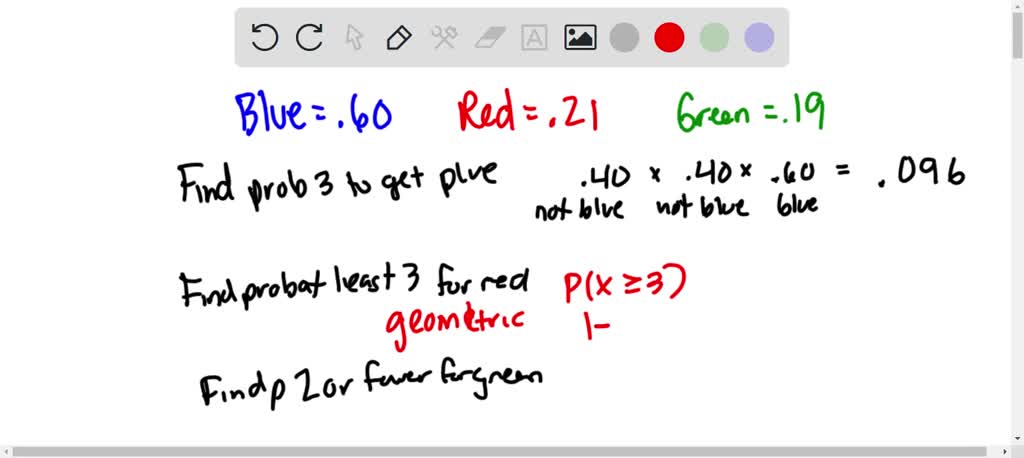 Blue = .60 Red = .21 Green = .19
Find prob 3 to get plue .40 x .40 x .60 = .096
not blue not blue blue
Find prob at least 3 for red P(x ≥ 3)
geometric 1-
Find p 2 or fewer for green